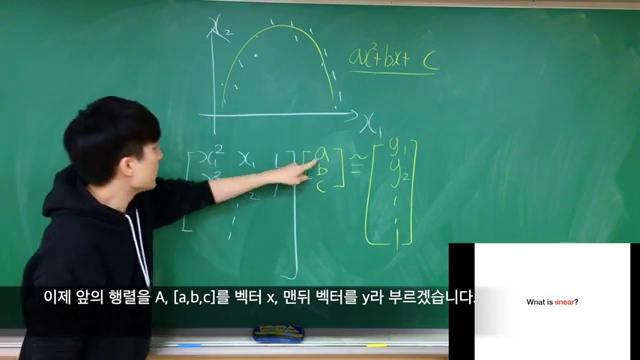 x₂
ax²+bx+ c
x₁
x₁² x₁ 1 a ≈ y₁
b y₂
c
이제 앞의 행렬을 A, [a,b,c]를 벡터 x, 맨뒤 벡터를 y라 부르겠습니다.
What is linear?